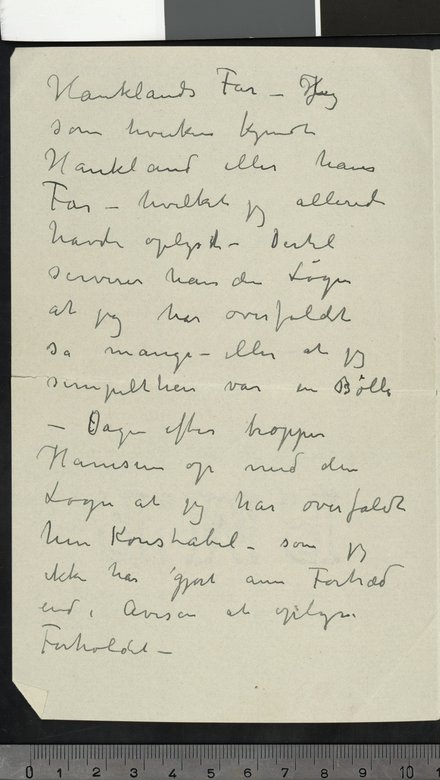 Hauklands Far – Jeg
som hverken kjendte
Haukland eller hans
Far – hvilket jeg allerede
havde oplyst – Dertil
serverer han den Løgn
at jeg har overfaldt
så mange – eller at jeg
simpelthen var en Bølle
– Dagen efter tropper
op med den
Løgn at jeg har overfaldt
hin Konstabel – som jeg
ikke har gjort ann Fortræd
end i Avisen at oplyse
Forholdet –
0 1 2 3 4 5 6 7 8 9 10